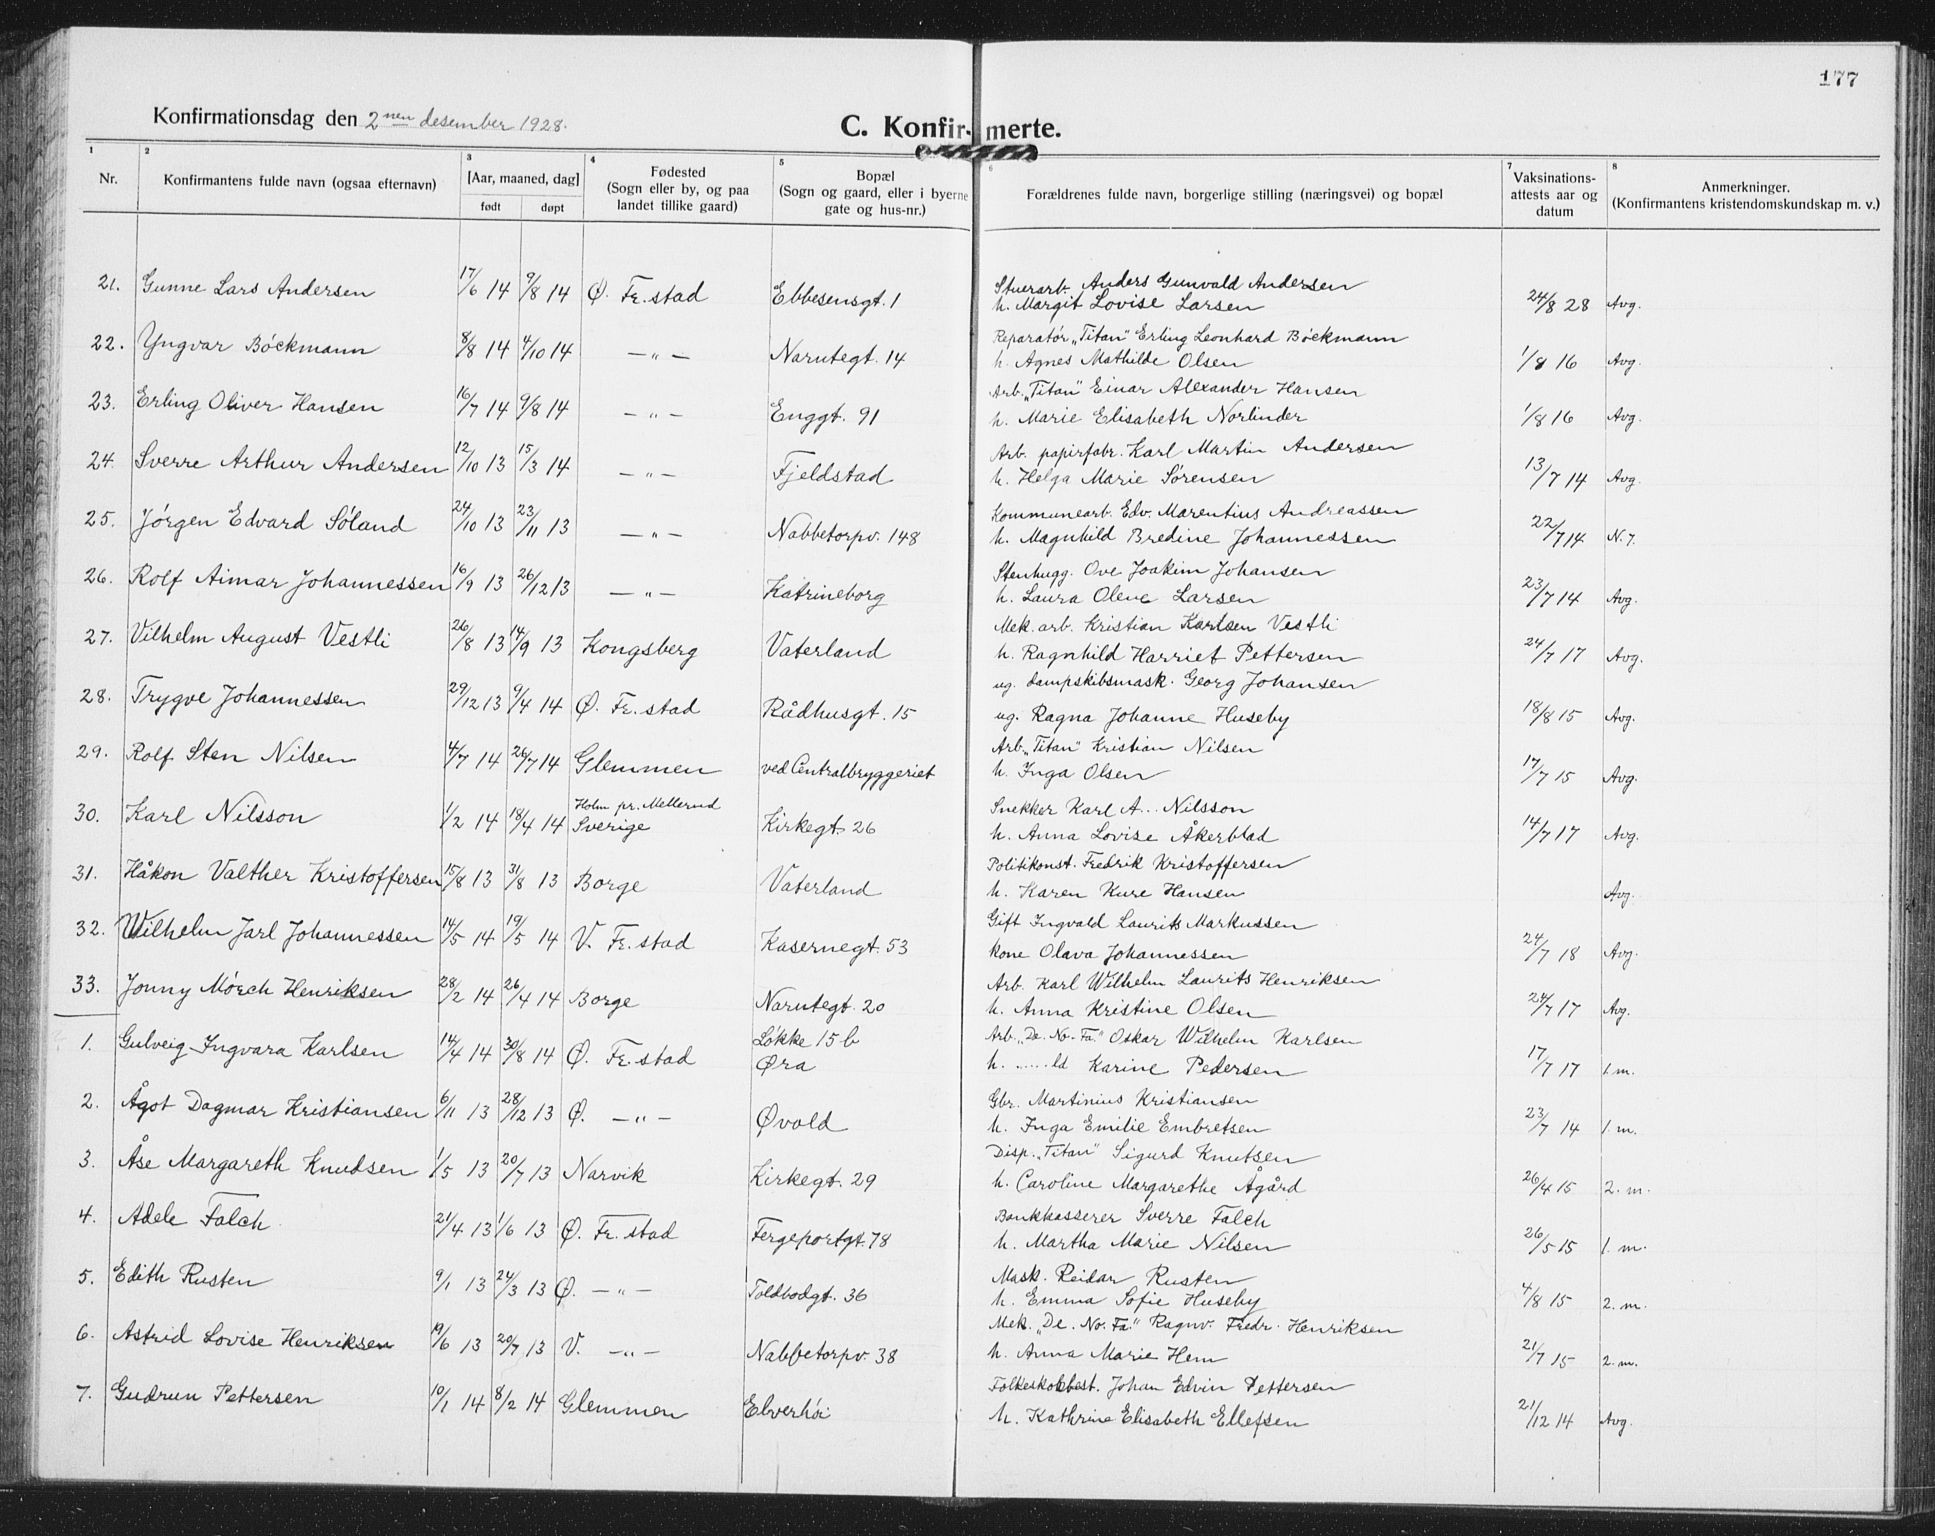 177
Konfirmationsdag den 2nen desember 1928.
C. Konfir- merte.
1 2 3 4 5 6 7 8
Nr. Konfirmantens fulde navn (ogsaa efternavn) [Aar, maaned, dag] født døpt Fødested (Sogn eller by, og paa landet tillike gaard) Bopæl (Sogn og gaard, eller i byerne gate og hus-nr.) Forældrenes fulde navn, borgerlige stilling (næringsvei) og bopæl Vaksinations-attests aar og datum Anmerkninger. (Konfirmantens kristendomskundskap m. v.)
21. Gunne Lars Andersen 17/6 14 9/8 14 Ø. Fr.stad Ebbesensgt. 1 Stuerarb. Anders Gunvald Andersen
h. Margit Lovise Larsen 24/8 28 Avg.
22. Yngvar Böckmann 8/8 14 4/10 14 —„— Narutegt. 14 Reparatør „Titan" Erling Leonhard Böckmann
h. Agnes Mathilde Olsen 1/8 16 Avg.
23. Erling Oliver Hansen 16/7 14 9/8 14 —„— Enggt. 91 Arb. „Titan" Einar Alexander Hansen
h. Marie Elisabeth Norlinder 1/8 16 Avg.
24. Sverre Arthur Andersen 12/10 13 15/3 14 —„— Fjeldstad Arb. papirfabr. Karl Martin Andersen
h. Helga Marie Sørensen 13/7 14 Avg.
25. Jörgen Edvard Söland 24/10 13 23/11 13 —„— Nabbetorpv. 148 Kommunearb. Edv. Marentius Andreassen
h. Magnhild Bredine Johannessen 22/7 14 N.7.
26. Rolf Aimar Johannessen 16/9 13 26/12 13 —„— Katrineborg Stenhugg. Ove Joakim Johansen
h. Laura Olene Larsen 23/7 14 Avg.
27. Vilhelm August Vestli 26/8 13 14/9 13 Kongsberg Vaterland Mek. arb. Kristian Karlsen Vestli
h. Ragnhild Harriet Pettersen 24/7 17 Avg.
28. Trygve Johannessen 29/12 13 9/4 14 Ø. Fr.stad Rådhusgt. 15 ug. dampskibsmask. Georg Johansen
ug. Ragna Johanne Huseby 18/8 15 Avg.
29. Rolf Sten Nilsen 4/7 14 26/7 14 Glemmen ved Centralbryggeriet Arb. „Titan" Kristian Nilsen
h. Inga Olsen 17/7 15 Avg.
30. Karl Nilsson 1/2 14 18/4 14 Holm pr. Mellerud Sverige Kirkegt 26 Snekker Karl A... Nilsson
h. Anna Lovise Åkerblad 14/7 17 Avg.
31. Håkon Valther Kristoffersen 15/8 13 31/8 13 Borge Vaterland Politikonst. Fredrik Kristoffersen
h. Karen Kure Hansen Avg.
32. Wilhelm Jarl Johannessen 14/5 14 19/5 14 V. Fr.stad Kasernegt. 53 Gift Ingvald Laurits Markussen
kone Olava Johannessen 24/7 18 Avg.
33. Jonny Mörch Henriksen 28/2 14 26/4 14 Borge Narutegt. 20 Arb. Karl Wilhelm Laurits Henriksen
h. Anna Kristine Olsen 24/7 17 Avg.
1. Gulveig Ingvara Karlsen 14/4 14 30/8 14 Ø. Fr.stad Løkke 15 b Øra Arb. „De. No-Fa." Oskar Wilhelm Karlsen
h. ......ld Karine Pedersen 17/7 17 1. m.
2. Ågot Dagmar Kristiansen 6/11 13 28/12 13 Ø. —„— Øvold Gbr. Martinius Kristiansen
h. Inga Emilie Embretsen 23/7 14 1. m.
3. Åse Margareth Knudsen 1/5 13 20/7 13 Narvik Kirkegt. 29 Disp. „Titan" Sigurd Knutsen
h. Caroline Margarethe Ågård 26/4 15 2. m.
4. Adele Falch 21/4 13 1/6 13 Ø. Fr. stad Fergeportgt. 78 Bankkasserer Sverre Falch
h. Martha Marie Nilsen 26/5 15 1. m.
5. Edith Rusten 9/1 13 24/3 13 Ø. —„— Toldbodgt. 36 Mask. Reidar Rusten
h. Emma Sofie Huseby 4/8 15 2. m.
6. Astrid Lovise Henriksen 19/6 13 20/7 13 V. —„— Nabbetorpv. 38 Mek. „De. No. Fa." Ragnv. Fredr. Henriksen
h. Anna Marie Hem 21/7 15 2. m.
7. Gudrun Pettersen 10/1 14 8/2 14 Glemmen Elverhöi Folkeskolebest. Johan Edvin Pettersen
h. Kathrine Elisabeth Ellefsen 21/12 14 Avg.